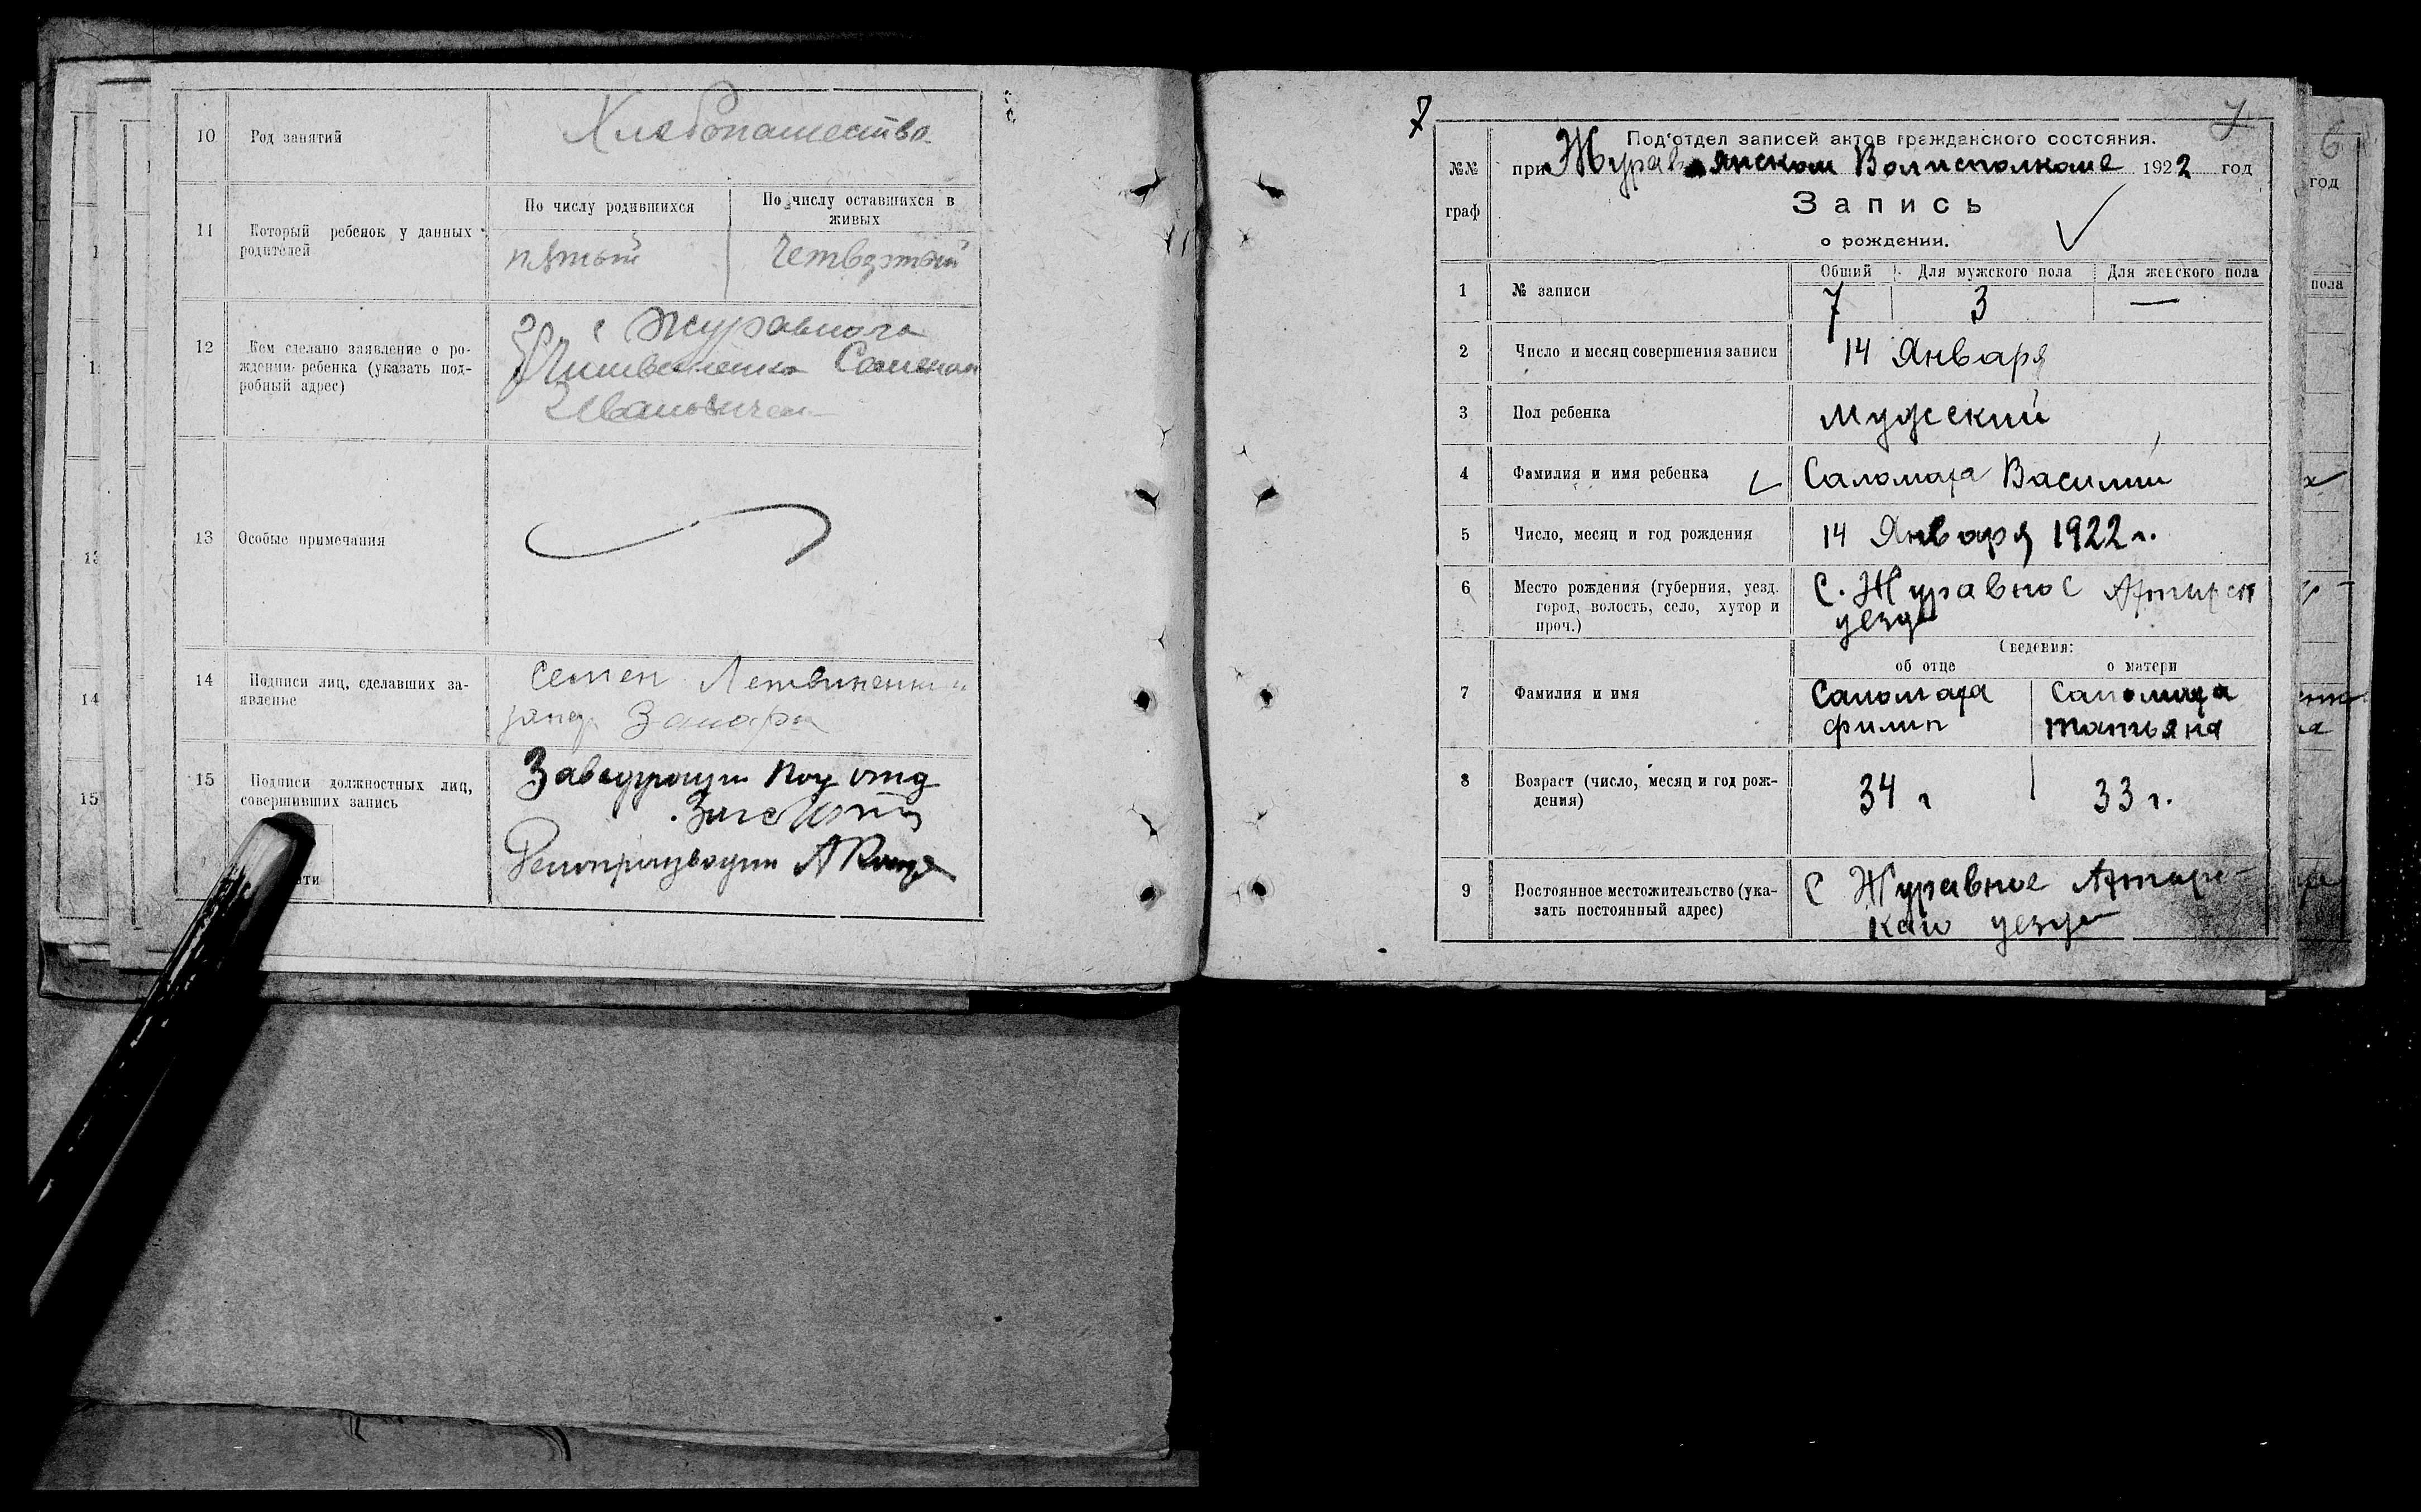 10 Род занятий Хлебопашество.
11 Который ребенок у данных родителей
По числу родившихся
По числу оставшихся в живых
пятый
Четвертый
12 Кем сделано заявление о ро-
ждении ребенка (указать под-
робный адрес)
с Журавного
Литвиненко Семеном
Ивановичем
13 Особые примечания
14 Подписи лиц, сделавших за-
явление
Семен Летвиненко
15 Подписи должностных лиц,
совершивших запись
Заведующий Под отд
Делопроизводит
7
7
№№
граф
Под'отдел записей актов гражданского состояния.
при Журавлянском Волисполкоме 1922 год
Запись
о рождении.
Общий Для мужского пола Для женского пола
1 № записи 7 3 —
2 Число и месяц совершения записи 14 Января
3 Пол ребенка мужеский
4 Фамилия и имя ребенка Саломаха Василий
5 Число, месяц и год рождения 14 Января 1922 г.
6 Место рождения (губерния, уезд.
город, волость, село, хутор и
проч.)
С. Журавное Ахтырск
уезда
Сведения:
об отце о матери
7 Фамилия и имя
Саломаха Саломаха
Филип Татьяна
8 Возраст (число, месяц и год рож-
дения)
34 г 33 г.
9 Постоянное местожительство (ука-
зать постоянный адрес)
С Журавное Ахтырс-
каго уезда
6
год
пола
1
1
13
14
15